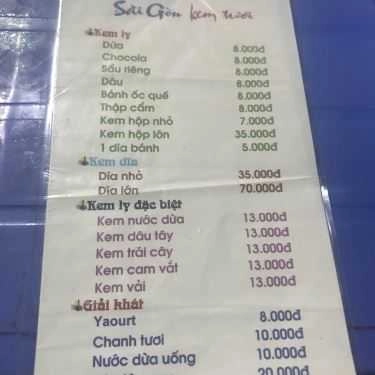 Sài Gòn kem tươi
Kem ly
Dừa 8.000đ
Chocola 8.000đ
Sầu riêng 8.000đ
Dâu 8.000đ
Bánh ốc quế 8.000đ
Thập cẩm 8.000đ
Kem hộp nhỏ 7.000đ
Kem hộp lớn 35.000đ
1 dĩa bánh 5.000đ
Kem dĩa
Dĩa nhỏ 35.000đ
Dĩa lớn 70.000đ
Kem ly đặc biệt
Kem nước dừa 13.000đ
Kem dâu tây 13.000đ
Kem trái cây 13.000đ
Kem cam vắt 13.000đ
Kem vải 13.000đ
Giải khát
Yaourt 8.000đ
Chanh tươi 10.000đ
Nước dừa uống 10.000đ
20.000đ